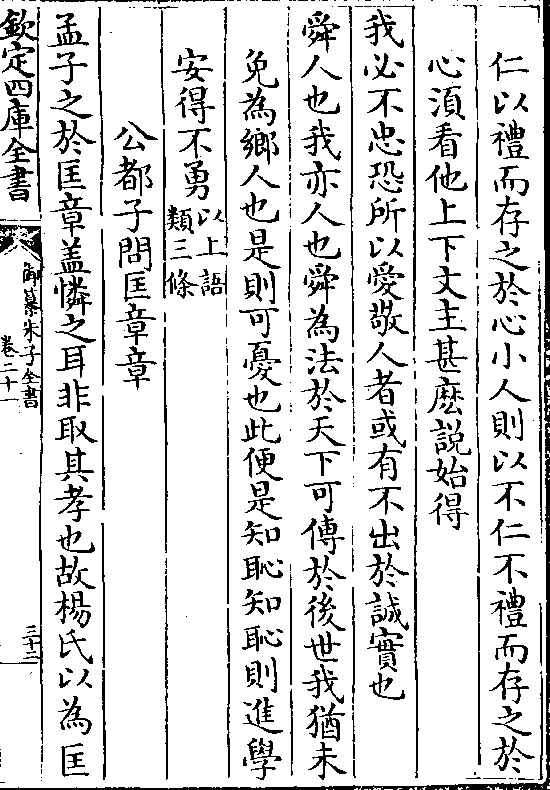 仁以禮而存之於心小人則以不仁不禮而存之於
心湏看他上下文主甚麽説始得
我必不忠恐所以愛敬人者或有不出於誠實也
舜人也我亦人也舜為法於天下可傳於後世我猶未
免為鄉人也是則可憂也此便是知恥知恥則進學
安得不勇以上語類三條
公都子問匡章章
孟子之於匡章盖憐之耳非取其孝也故楊氏以為匡
欽定四庫全書
御纂朱子全書
卷二十一
三十二